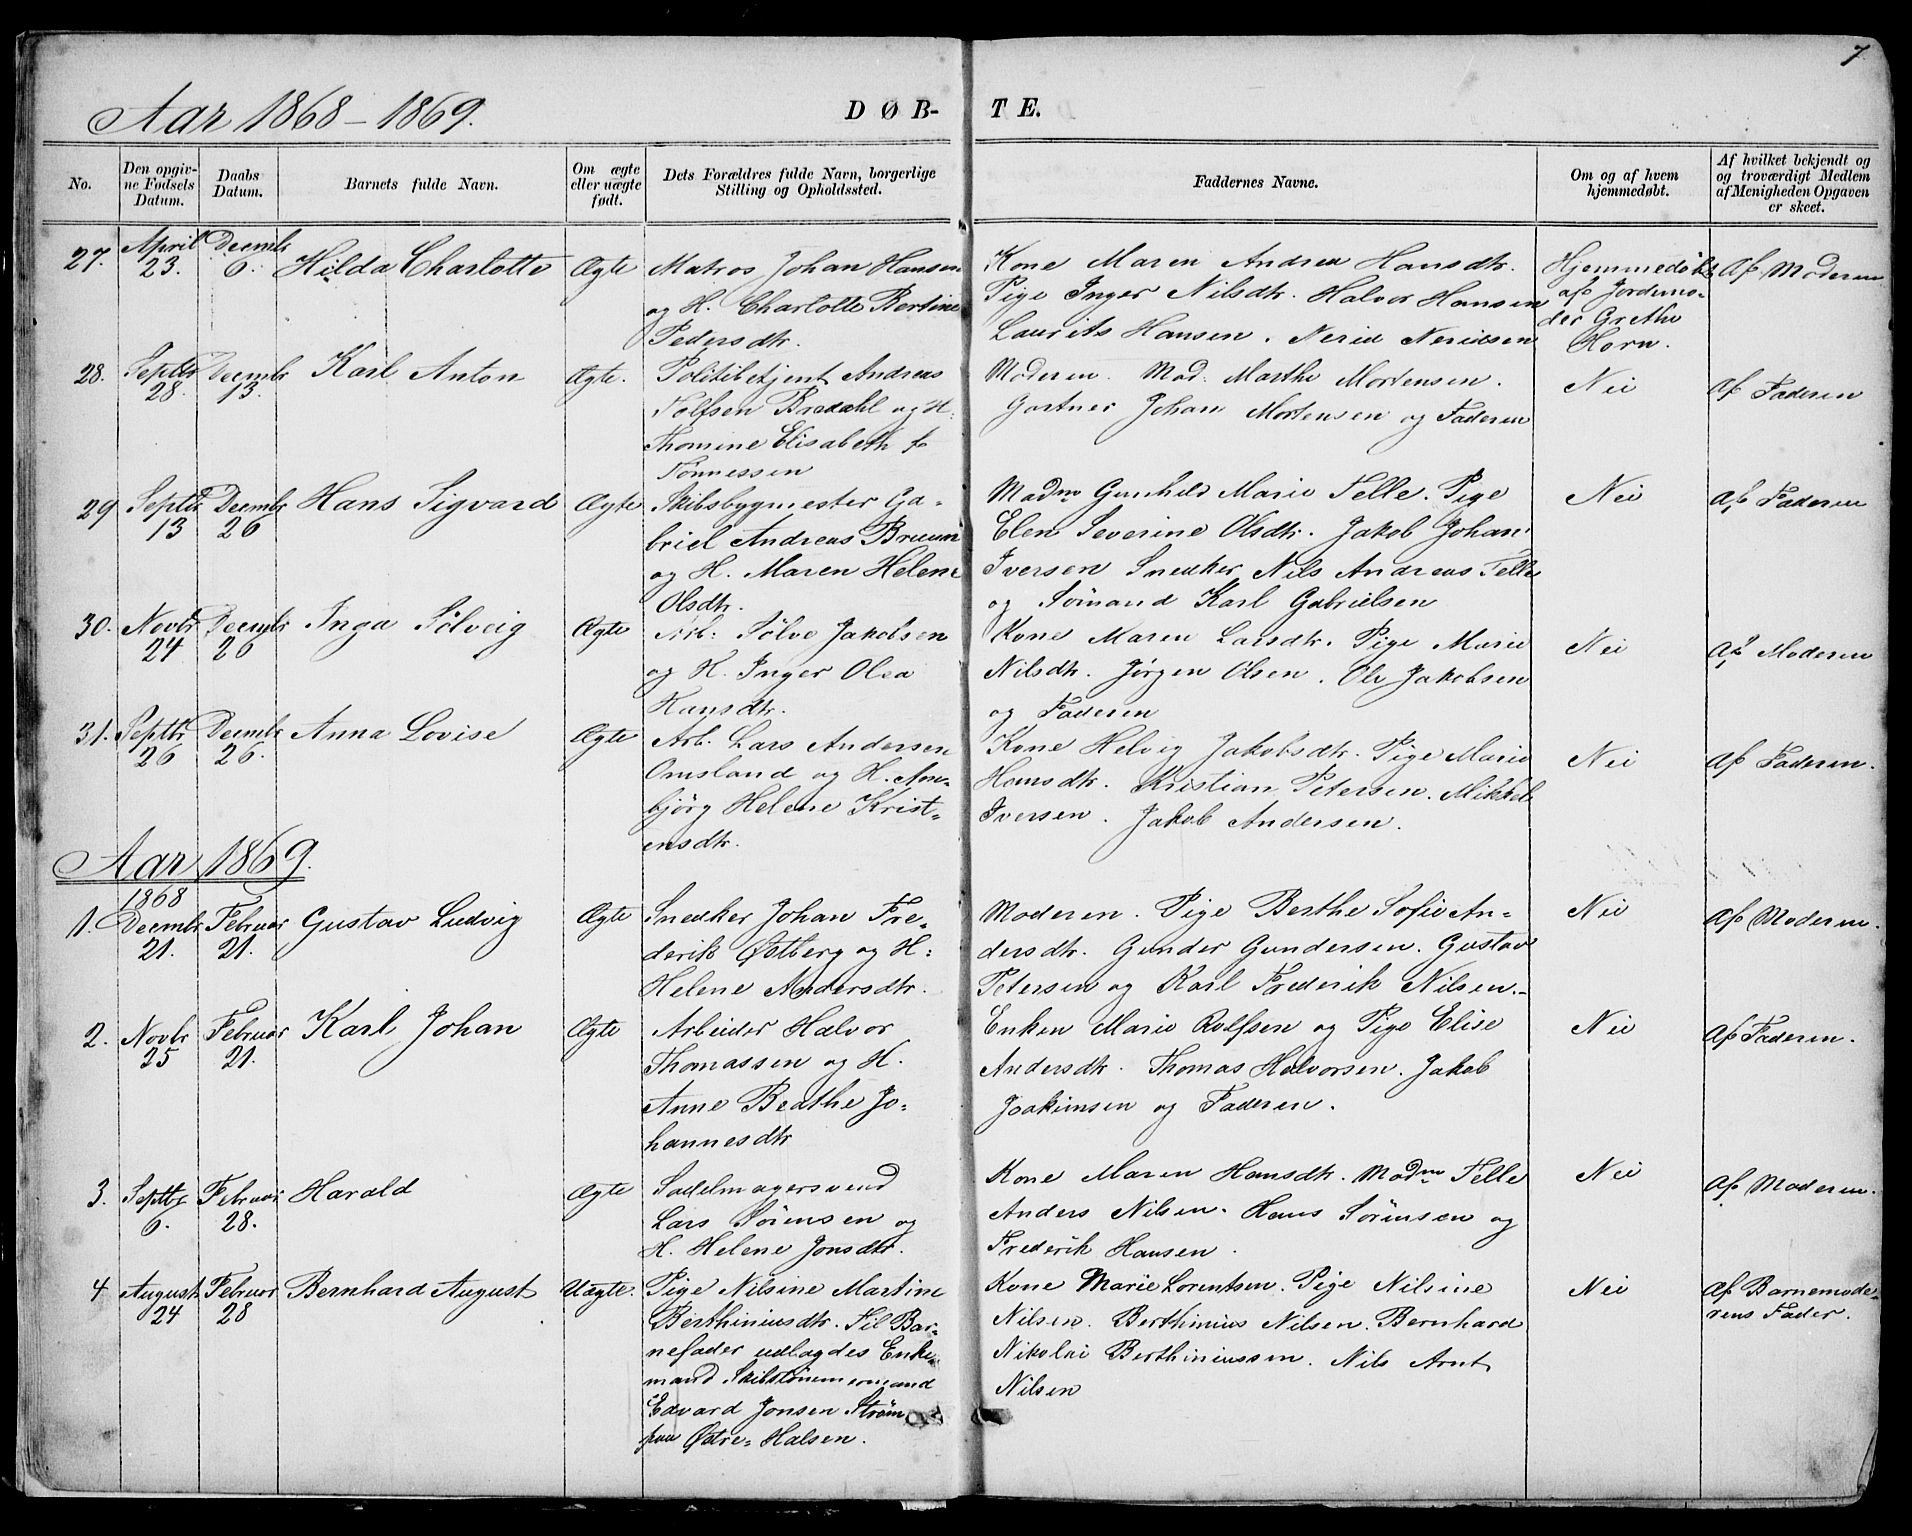 7
Aar 1868-1869. DØB- TE.
No. Den opgiv- Daabs Barnets fulde Navn. Om ægte Dets Forældres fulde Navn, borgerlige Faddernes Navne. Om og af hvem Af hvilket bekjendt og
ne Fødsels Datum. eller uægte Stilling og Opholdssted. hjemmedøbt. og troværdigt Medlem
Datum. født. af Menigheden Opgaven
er skeet.
27. April 23. Decembr 6. Hilda Charlotte Ægte Matros Johan Hansen
og H. Charlotte Bertine
Pedersdtr.
Kone Maren Andrea Hansdtr.
Pige Inger Nilsdtr. Halvor Hansen
Laurits Hansen. Nerid Neridsen
Hjemmedøbt
af Jordemo-
der Grethe
Horn.
Af Moderen
28. Septbr 28. Decembr 13. Karl Anton Ægte. Politibetjent Andreas
Tolfsen Bredahl og H.
Thomine Elisabeth f
Tønnessen
Moderen. Mad. Marthe Mortensen.
Gartner Johan Mortensen og Faderen
Nei
Af Faderen
29 Septbr 13 Decembr 26 Hans Sigvard Ægte Skibsbygmester Ga-
briel Andreas Bruun
og H. Maren Helene
Olsdtr.
Madm Gunhild Marie Telle. Pige
Elen Severine Olsdtr. Jakob Johan
Iversen Snedker Nils Andreas Telle
og Sømand Karl Gabrielsen
Nei
Af Faderen
30. Novbr 24 Decembr 26 Inga Sølveig Ægte Arb: Sølve Jakobsen
og H. Inger Olea
Hansdtr.
Kone Maren Larsdtr. Pige Marie
Nilsdtr. Jørgen Olsen. Ole Jakobsen
og Faderen
Nei
Af Moderen
31. Septbr 26 Decembr 26. Anna Lovise Ægte Arb. Lars Andersen
Omsland og H. An-
bjørg Helene Krist-
ensdtr.
Kone Helvig Jakobsdtr. Pige Marie
Hansdtr. Kristian Petersen. Mikkel
Iversen. Jakob Andersen.
Nei
Af Faderen.
Aar 1869.
1868
1. Decembr 21. Februar 21. Gustav Ludvig Ægte Snedker Johan Fre-
derik Østberg og H:
Helene Andersdtr.
Moderen. Pige Berthe Sofie An-
dersdtr. Gunder Gundersen. Gustav
Petersen og Karl Frederik Nilsen.-
Nei
Af Moderen.
2. Novbr 25 Februar 21. Karl Johan Ægte Arbeider Halvor
Thomassen og H.
Anne Beathe Jo-
hannesdtr
Enken Marie Rolfsen og Pige Elise
Andersdtr. Thomas Halvorsen. Jakob
Joakimsen og Faderen.
Nei
Af Faderen.
3. Septbr 6. Februar 28. Harald Ægte Sadelmagersvend
Lars Sørensen og
H. Helene Jonsdtr.
Kone Maren Hansdtr. Madm Telle
Anders Nilsen. Hans Sørensen og
Frederik Hansen.
Nei
Af Moderen.
4 August 24 Februar 28 Bernhard August Uægte. Pige Nilsine Martine
Berthiniusdtr. Til Bar-
nefader udlagdes Enke-
mand Skibstømmermand
Edvard Jonsen Strøm
paa Østre-Halsen.
Kone Marie Lorentsen. Pige Nilsine
Nilsen. Berthinius Nilsen. Bernhard
Nikolai Berthiniussen. Nils Arnt
Nilsen
Nei
Af Barnemode-
rens Fader.